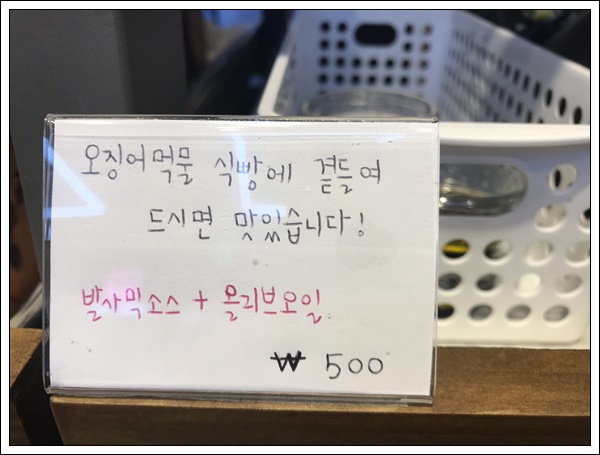 오징어먹물 식빵에 곁들여
드시면 맛있습니다!
발사믹소스 + 올리브오일
₩ 500